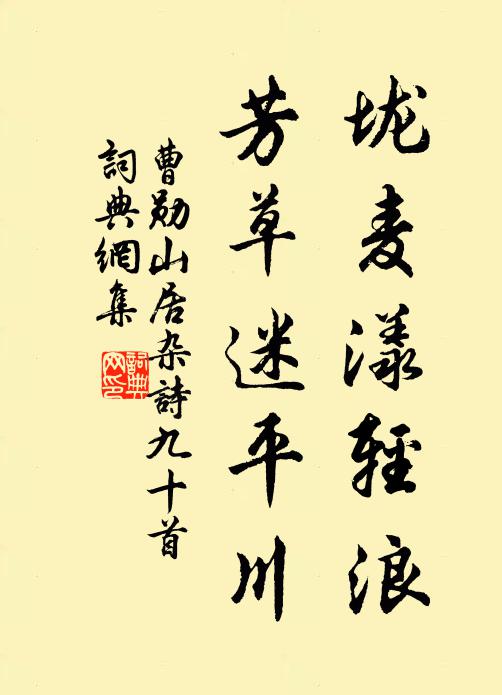 垅麦漾輕浪
芳草迷平川
曹勋山居杂詩九十首
詞典網集
詞典網印